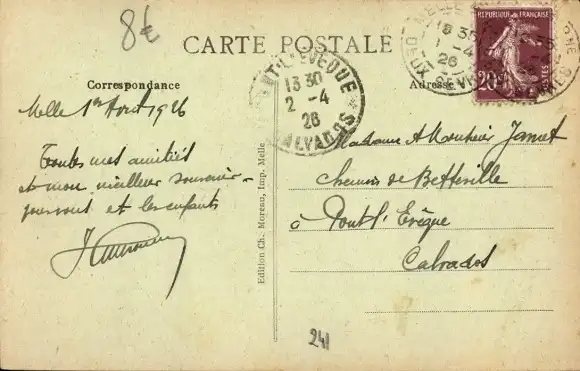 8€
CARTE POSTALE
Correspondance
Adresse
RÉPUBLIQUE FRANÇAISE
20c
POSTES
MELLE
18 35
1 -4
26
PONT-L'ÉVÊQUE
13 30
2 -4
26
CALVADOS
Melle 1er Avril 1926
Toutes mes amitiés
et mon meilleur souvenir
pour vous et les enfants
Edition Ch. Moreau, Imp. Melle
Madame & Monsieur Janet
Chemin de Betteville
à Pont l'Evêque
Calvados
241